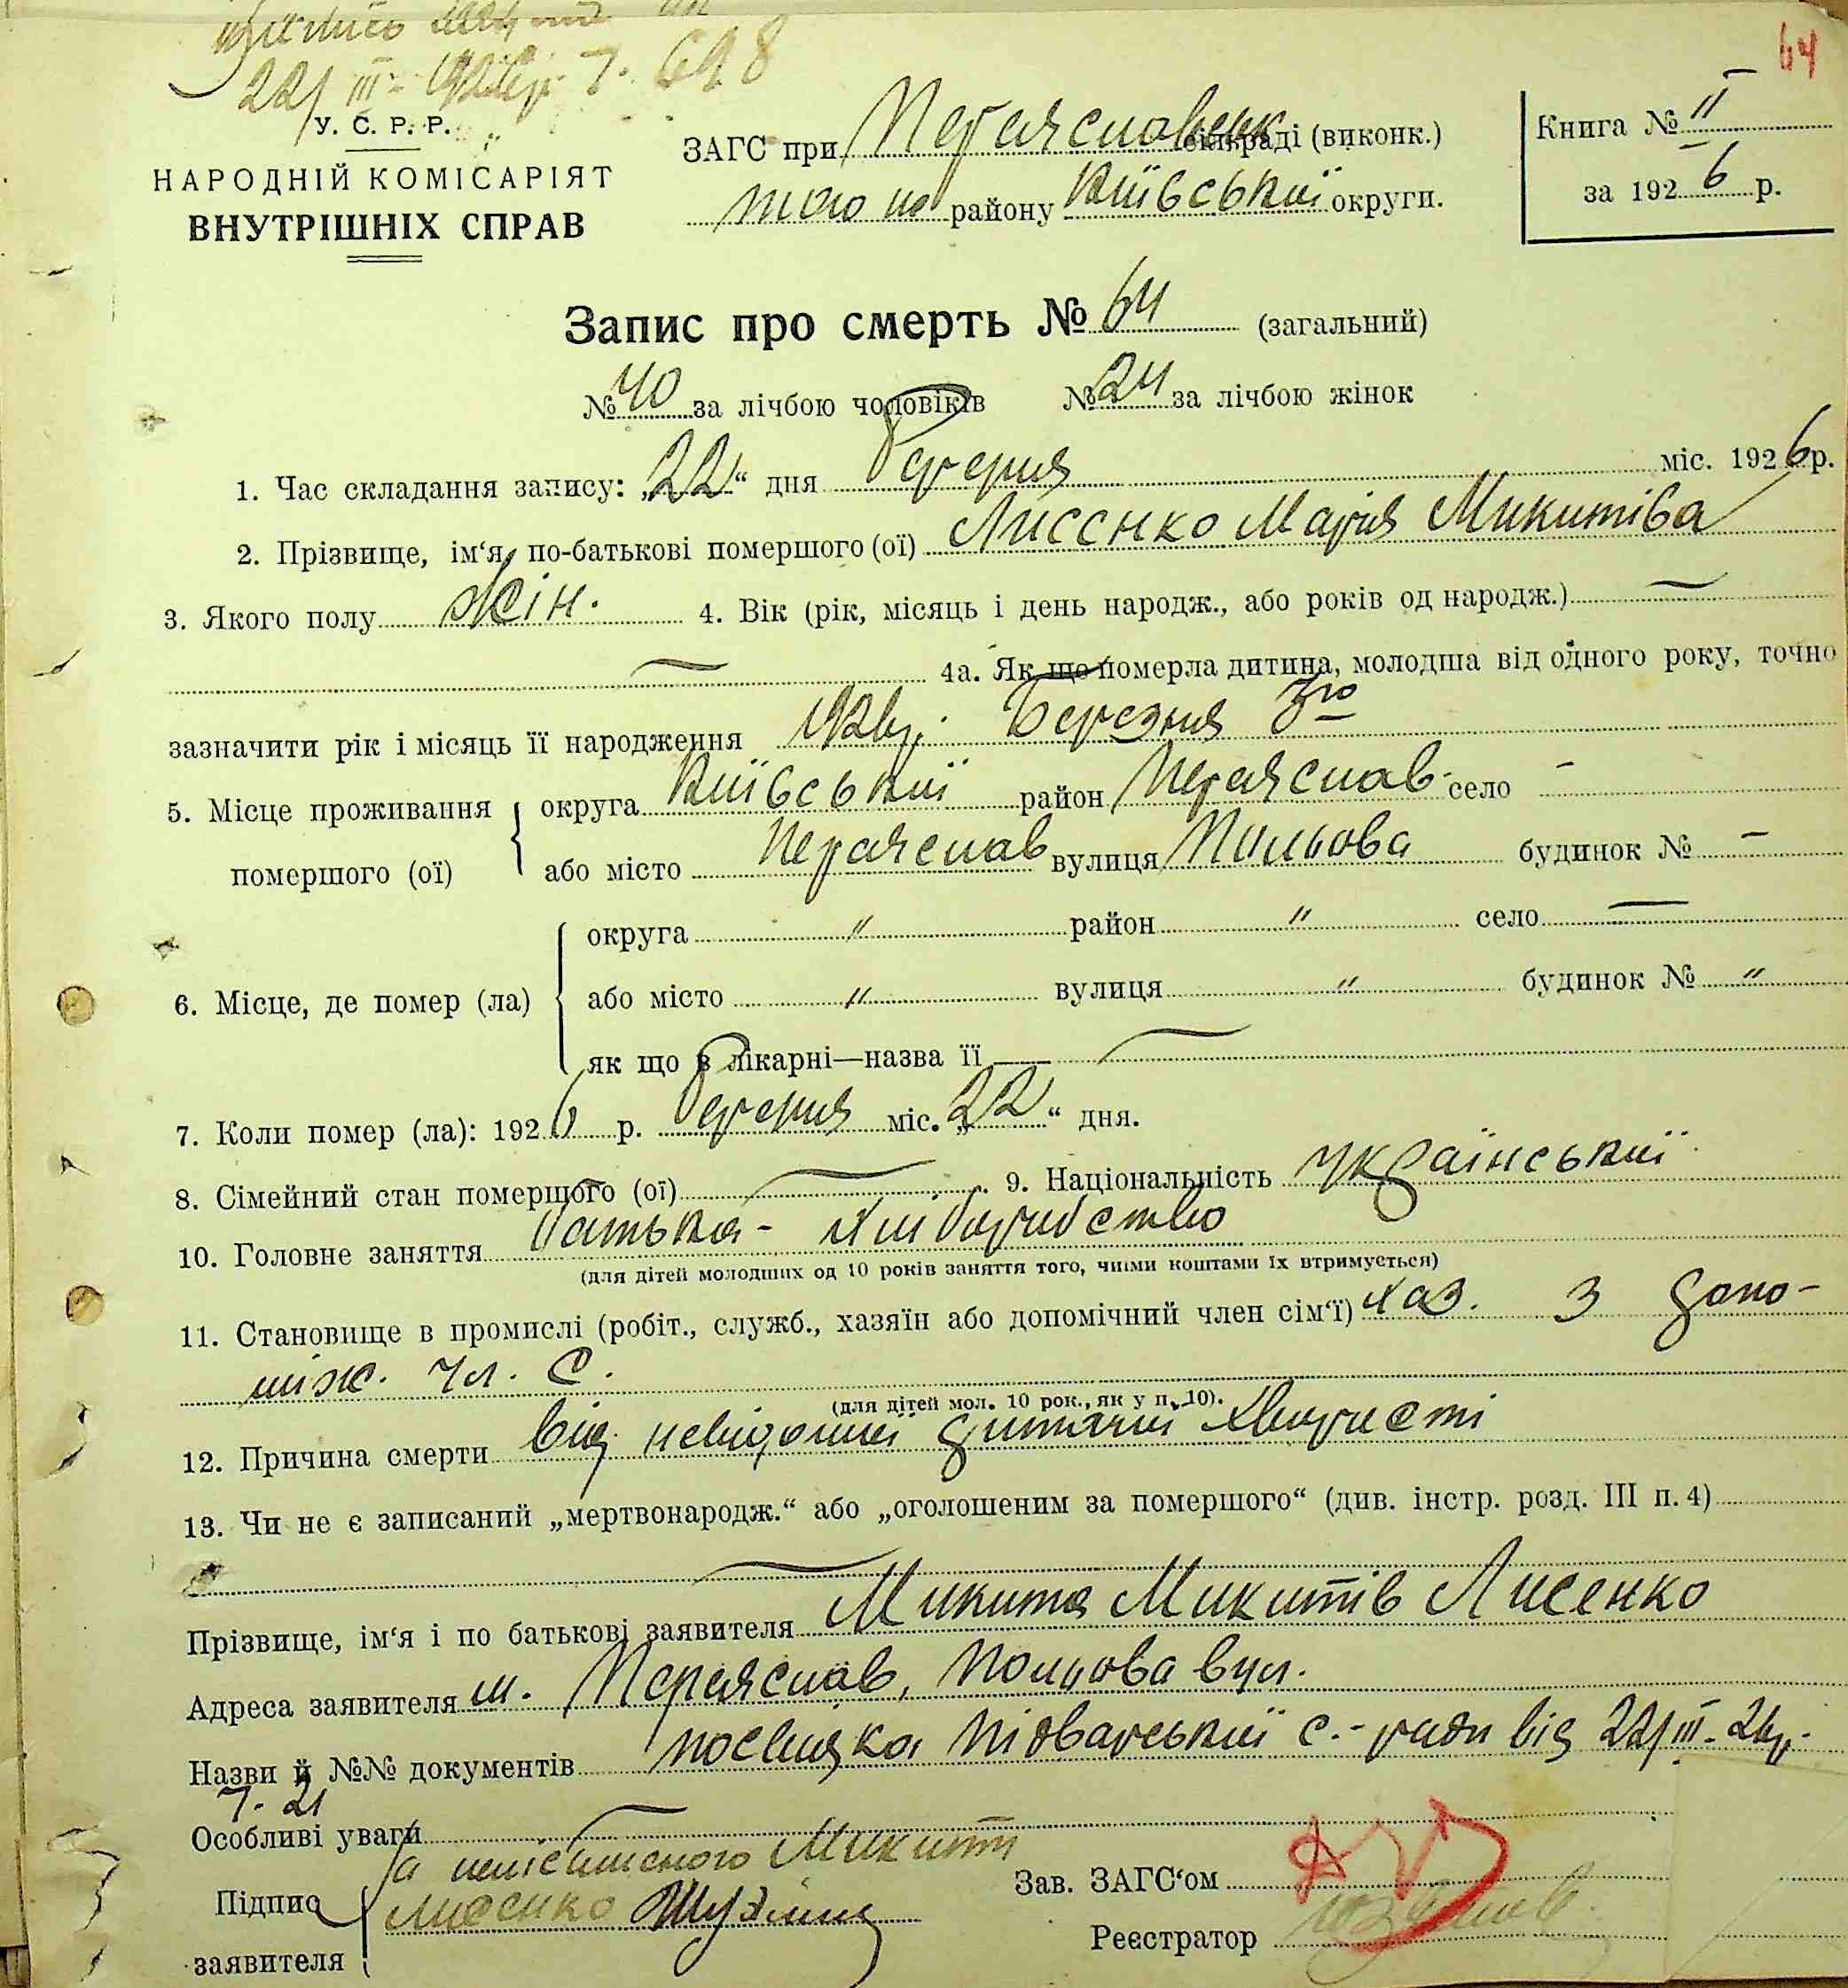 22/III-
64
У. С. Р. Р.
НАРОДНІЙ КОМІСАРІЯТ
ВНУТРІШНІХ СПРАВ
ЗАГС при Переяславськ сільраді (виконк.)
того ж району Київської округи.
Книга № II
за 1926 р.
Запис про смерть № 64 (загальний)
№ 40 за лічбою чоловіків № 24 за лічбою жінок
1. Час складання запису: „22“ дня Березня міс. 1926 р.
2. Прізвище, ім‘я, по-батькові помершого (ої) Лисенко Марія Микитіва
3. Якого полу жін. 4. Вік (рік, місяць і день народж., або років од народж.) —
— 4а. Як що померла дитина, молодша від одного року, точно
зазначити рік і місяць її народження 1926 р. Березня 3го
5. Місце проживання округа Київської район Переяслав. село —
помершого (ої) або місто Переяслав вулиця Польова будинок № —
округа " район " село —
6. Місце, де помер (ла) або місто " вулиця " будинок № "
як що в лікарні—назва її —
7. Коли помер (ла): 1926 р. Березня міс. „22“ дня.
8. Сімейний стан помершого (ої) — 9. Національність Української
10. Головне заняття батька - хліборобство
(для дітей молодших од 10 років заняття того, чиїми коштами їх втримується)
11. Становище в промислі (робіт., служб., хазяїн або допомічний член сім‘ї) хаз. з допо-
між. чл. с.
(для дітей мол. 10 рок., як у п. 10).
12. Причина смерти від невідомої дитячої хворости
13. Чи не є записаний „мертвонародж.“ або „оголошеним за помершого“ (див. інстр. розд. III п. 4)
—
Прізвище, ім‘я і по батькові заявителя Микита Микитів Лисенко
Адреса заявителя м. Переяслав, Польова вул.
Назви й №№ документів посвідка Підварської с.-ради від 22/III-26р.
7. 21
Особливі уваги —
За неписьменного Микити
Підпис Лисенко
заявителя
Зав. ЗАГС‘ом
Реєстратор